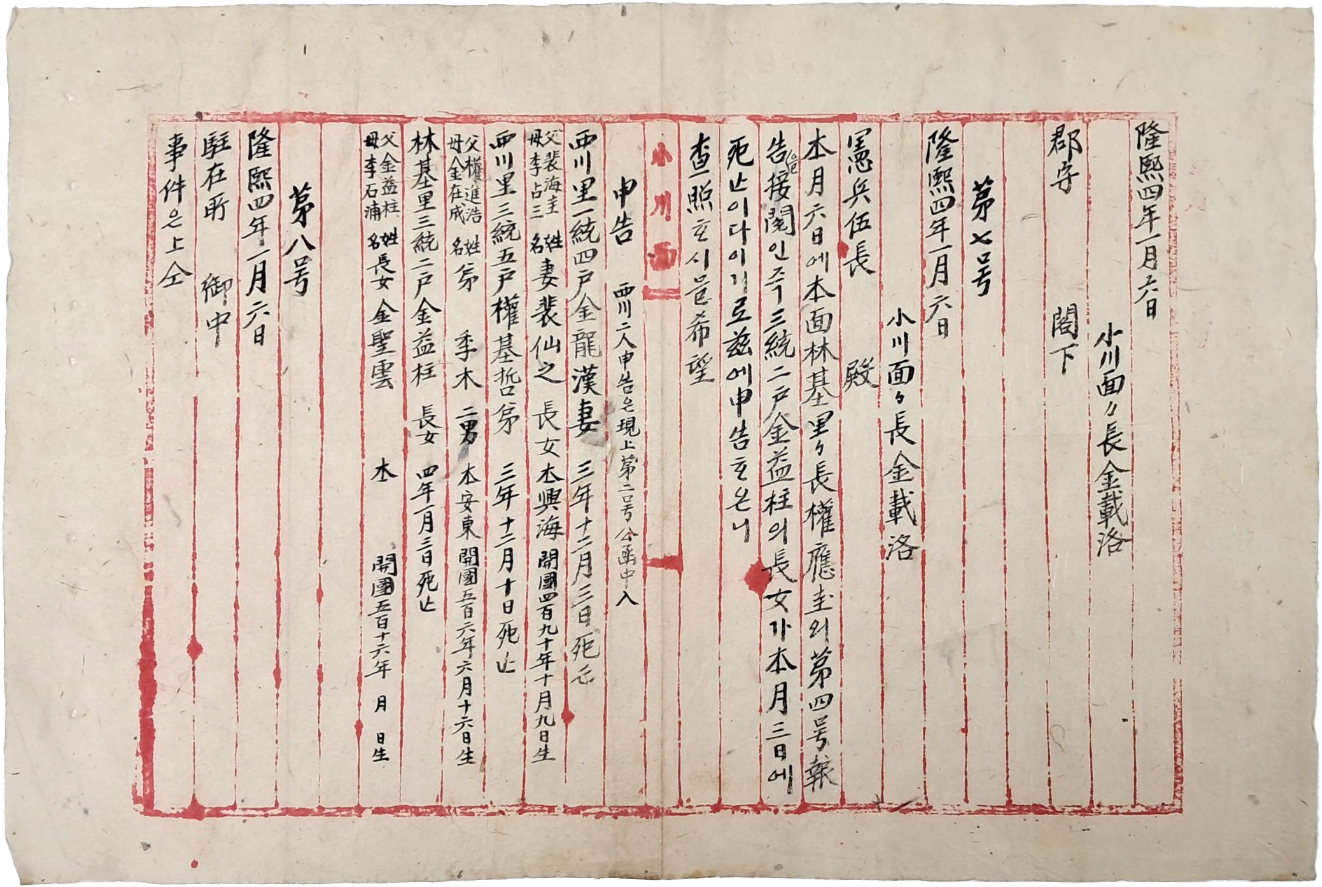 隆熙四年一月六日
小川面々長金載洛
郡守 閤下
第七号
隆熙四年一月六日
小川面々長金載洛
憲兵伍長 殿
本月六日에本面林基里々長權應圭의第四号報
告을接閱인즉三統二戶金益柱의長女가本月三日에
死亡이다이기로玆에申告호오니
査照호시믈希望
小川面
申告 西川二人申告은現上第二号公函中入
西川里一統四戶金龍漢妻 三年十二月三日死亡
父裴海圭 母李占三 姓名 妻裴仙之 長女 本興海 開國四百九十年十月九日生
西川里三統五戶權基哲弟 三年十二月十日死亡
父權進浩 母金在成 姓名 弟 季木 二男 本安東 開國五百六年六月十六日生
林基里三統二戶金益柱 長女 四年一月三日死亡
父金益柱 母李石浦 姓名 長女金聖雲 本 開國五百十六年 月 日生
第八号
隆熙四年一月六日
駐在所 御中
事件은上仝